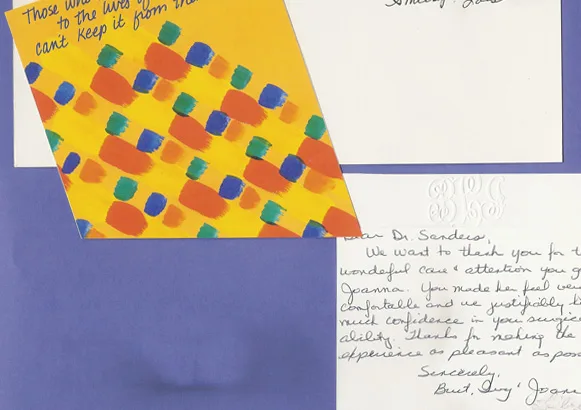 Those who
to the lives of
can't keep it from
Dear Dr. Sanders,
We want to thank you for
wonderful care & attention you
Joanna. You made her feel
comfortable and we justifiably
much confidence in your
ability. Thanks for making the
experience as pleasant as
Sincerely,
Burt, &